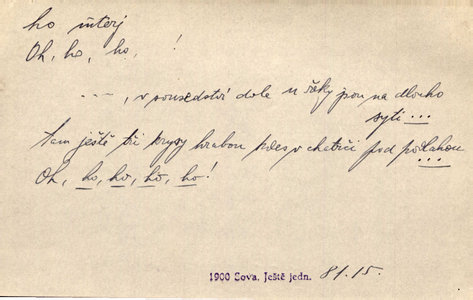 ho interj
Oh, ho, ho, !
---, v sousedství dole u řáky jsou na dlouho
syti...
tam ještě tři krysy hrabou kdes v chatrči pod podlahou
...
Oh, ho, ho, ho, ho!
1900 Sova. Ještě jedn. 81.15.